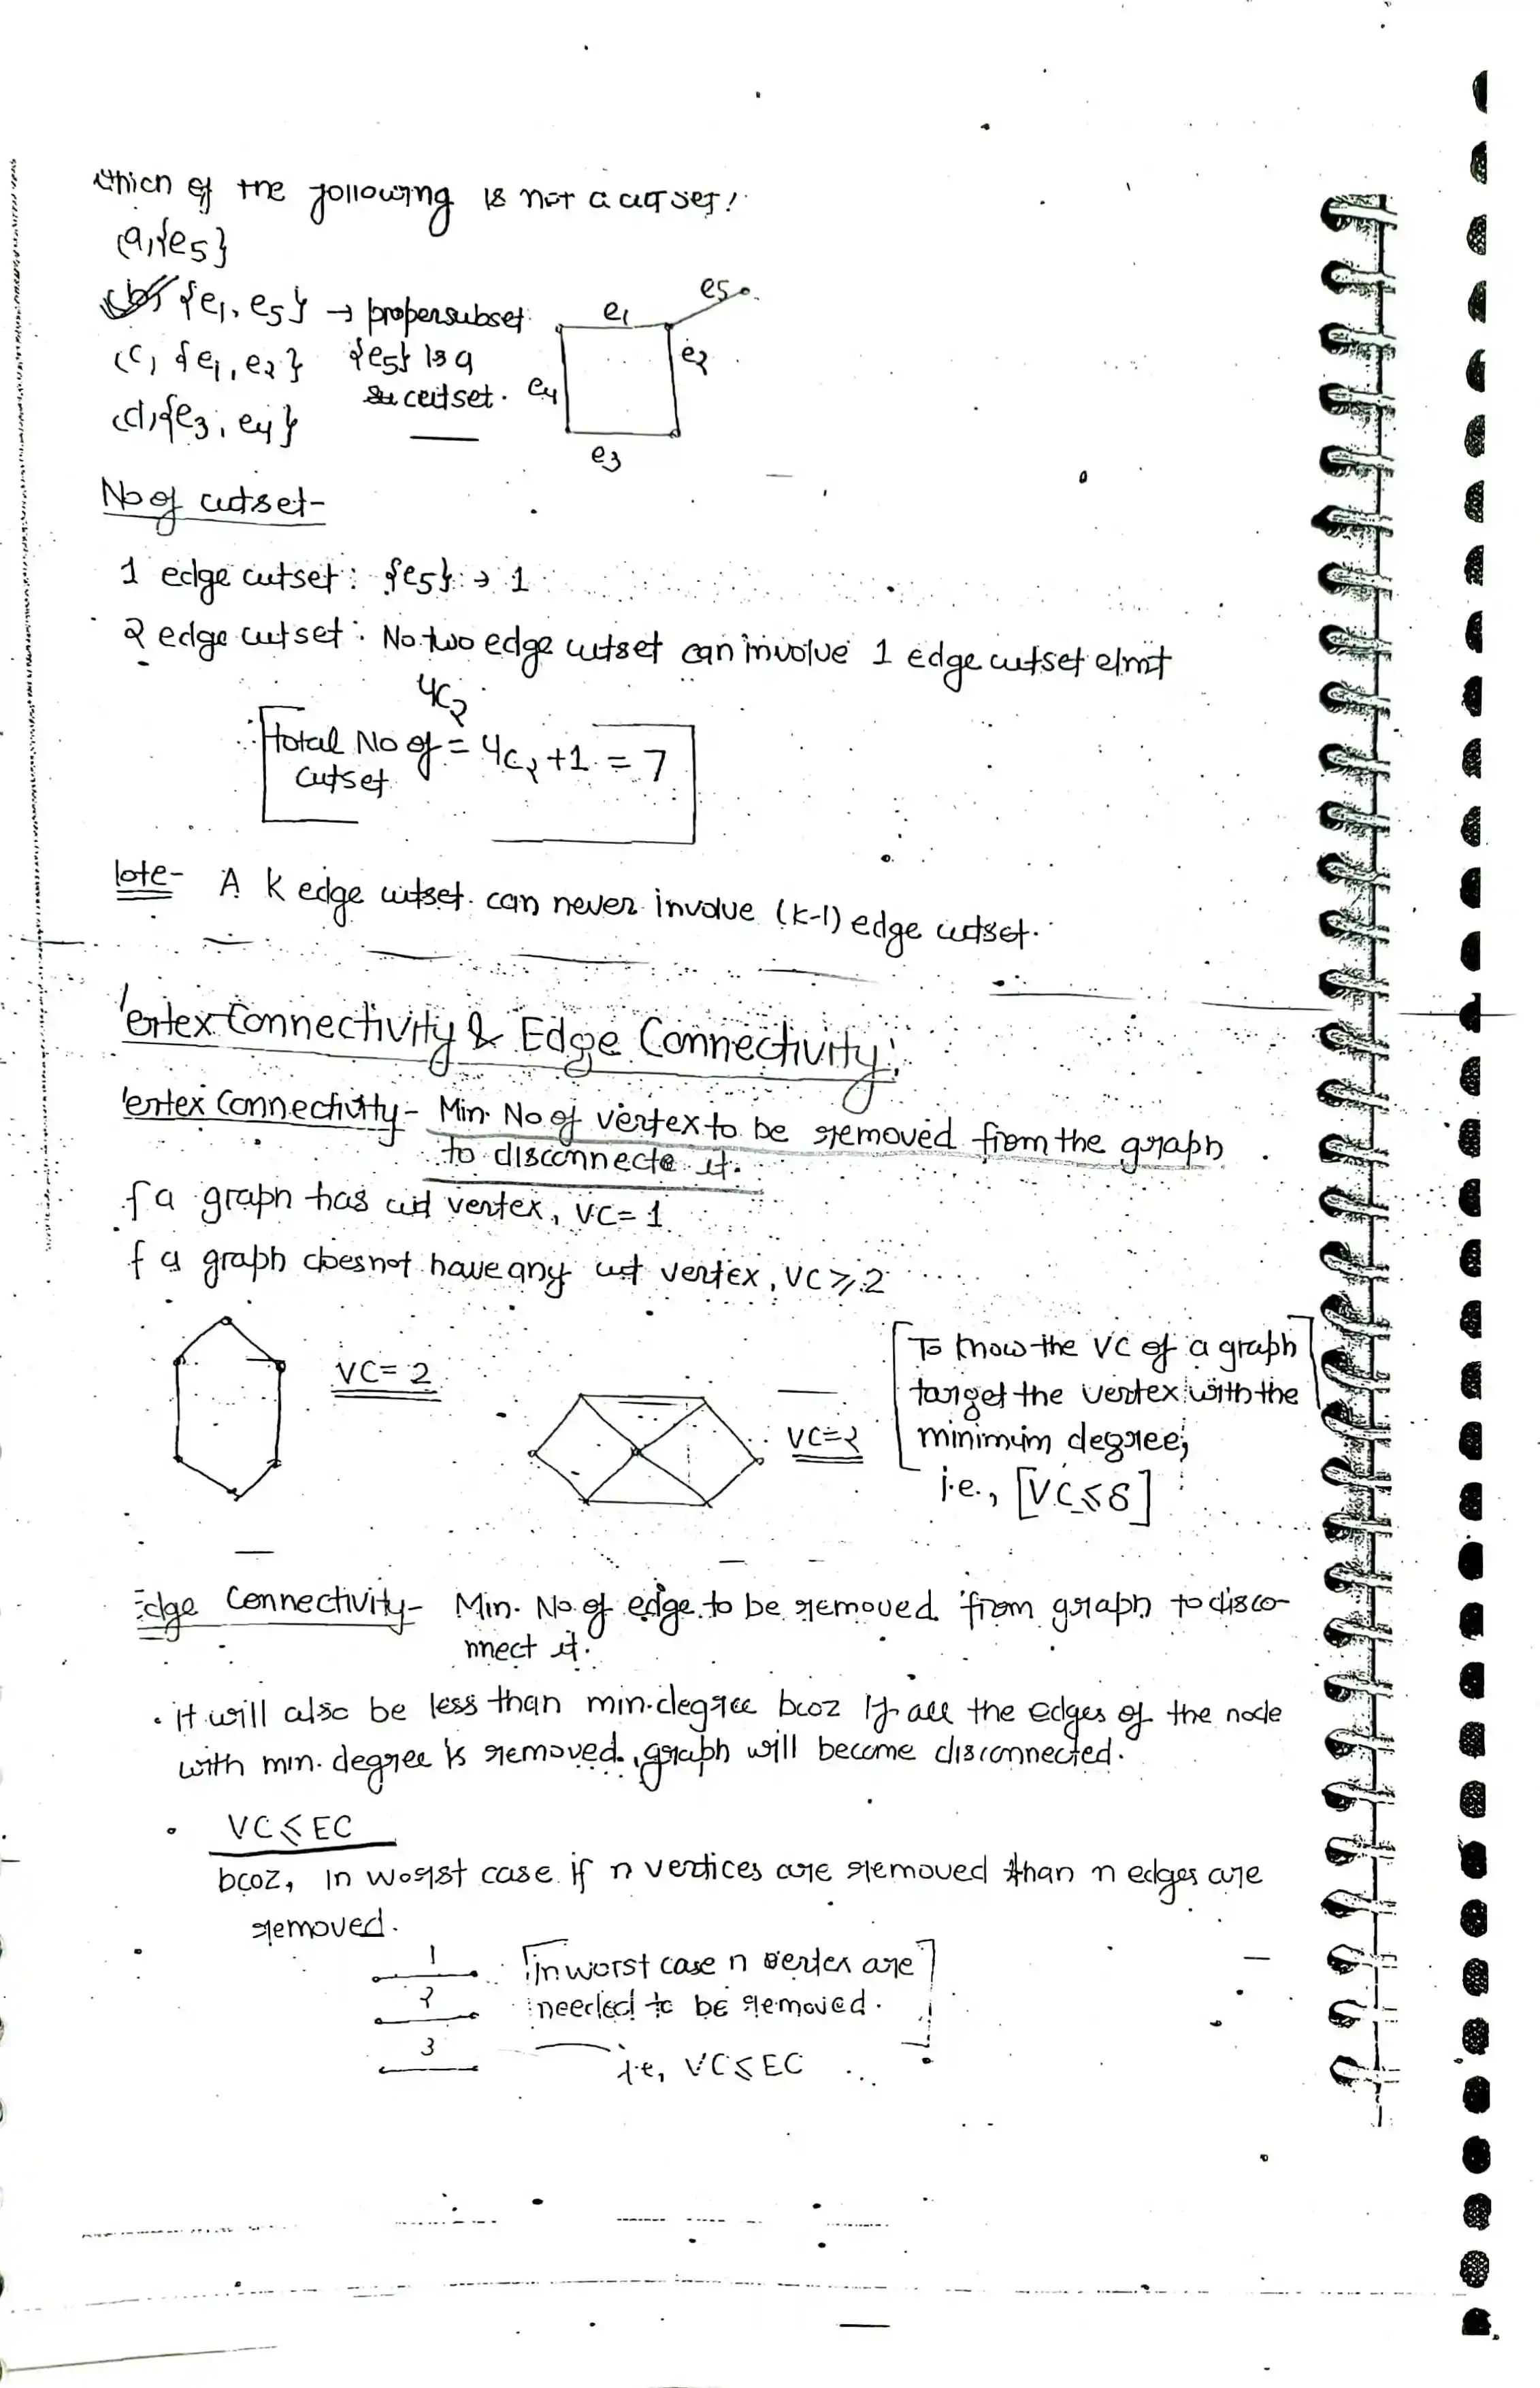 Which of the following is not a cut set?
(a) {e5}
(b) {e1, e5} → proper subset
{e5} is a
cutset.
(c) {e1, e2}
(d) {e3, e4}
e1
e5
e2
e4
e3
No of cutset-
1 edge cutset: {e5} → 1
2 edge cutset: No two edge cutset can involve 1 edge cutset elmt
4C2
Total No of = 4C2 +1 = 7
cutset
lote- A K edge cutset can never involve (K-1) edge cutset.
'ertex Connectivity & Edge Connectivity:
'ertex Connectivity - Min. No of vertex to be removed from the graph
to disconnecte it.
f a graph has cut vertex, VC = 1
f a graph does not have any cut vertex, VC ⩾ 2
VC = 2
VC = 2
[To know the VC of a graph
target the vertex with the
minimum degree;
i.e., [VC ≤ δ]
Edge Connectivity - Min. No. of edge to be removed from graph to disco-
nnect it.
• it will also be less than min. degree bcoz If all the edges of the node
with min. degree is removed, graph will become disconnected.
• VC ≤ EC
bcoz, in worst case if n vertices are removed than n edges are
removed.
1
2
3
[in worst case n vertex are
needed to be removed.]
i.e, VC ≤ EC